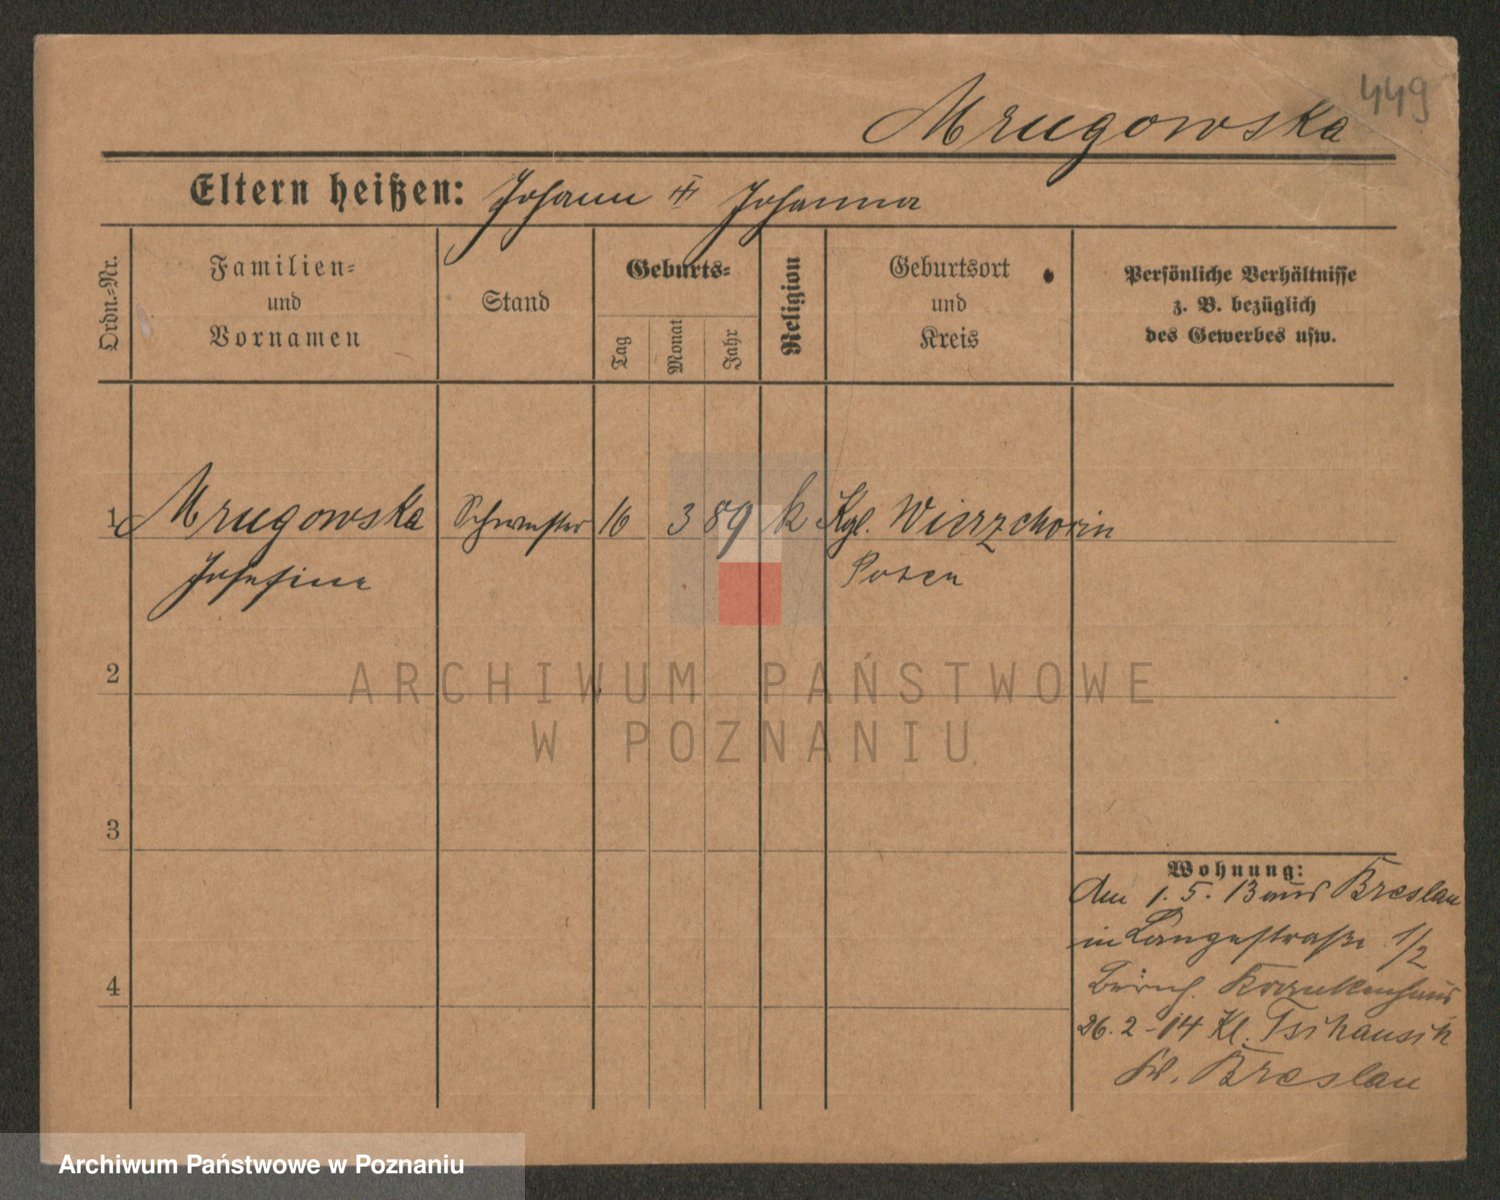 449
Mrugowska
Eltern heißen: Johann # Johanna
Ordn.-Nr.
Familien-
und
Vornamen
Stand
Geburts-
Tag
Monat
Jahr
Religion
Geburtsort
und
Kreis
Persönliche Verhältnisse
z. B. bezüglich
des Gewerbes usw.
1 Mrugowska Schwester 16 3 89 k Kgl. Wierzchorin
Josefine Posen
2
3
4
Wohnung:
Am 1. 5. 13 aus Breslau
in Langestraße 1/2
Krankenhaus
26. 2 - 14 Kl.
Breslau
ARCHIWUM PAŃSTWOWE
W POZNANIU
Archiwum Państwowe w Poznaniu